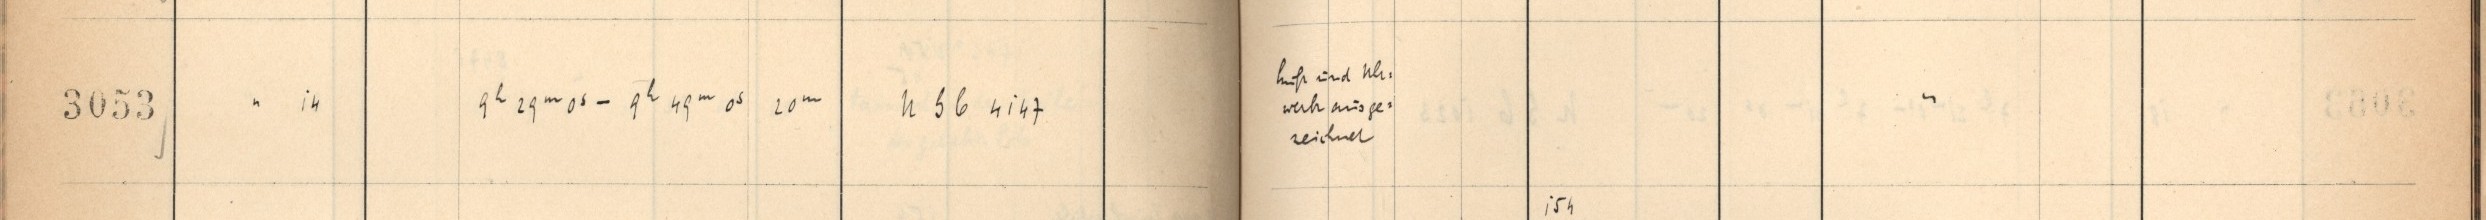 3053 " 14 9h 29m 0s – 9h 49m 0s 20m "
Luft und Uhr=
werk ausge=
zeichnet
154